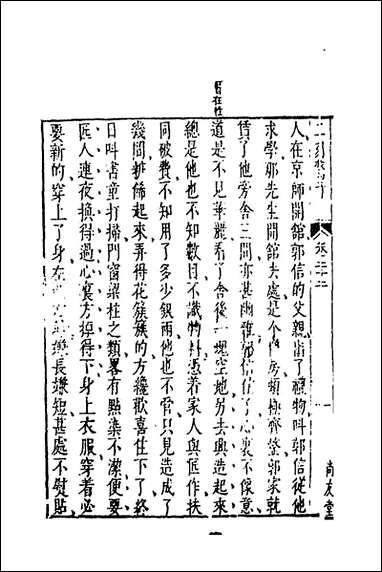 二刻驚奇 卷二十二 一 尚友堂
在性
人在京師開館郭信的父親出了禮物叫郭信從他
求學那先生開館去處是个門房頗極齊整郭家就
賃了他旁舍三間亦甚幽雅郭信住了心裏不像意
道是不見華麗看了舍後一塊空地另去興造起來
總是他也不知數目不識物料憑着家人與匠作扶
同破費不知用了多少銀兩他也不管只見造成了
幾間粧飾起來弄得花簇簇的方纔歡喜住下了終
日叫書童打掃門窗梁柱之類畧有點染不潔便要
匠人連夜換得過心裏方掉得下身上衣服穿着必
要新的穿上了身左嫌長嫌短甚處不熨貼